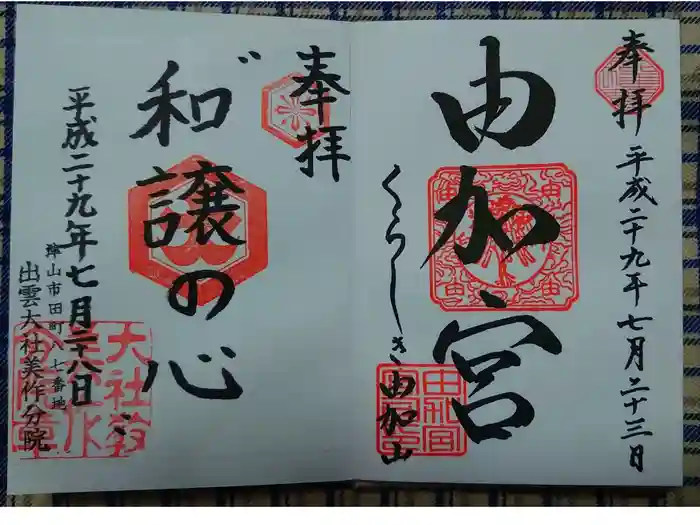 奉拝
平成二十九年七月二十三日
由加宮
くらしき由加山
奉拝
和譲の心
平成二十九年七月二十八日
津山市田町八七番地
出雲大社美作分院